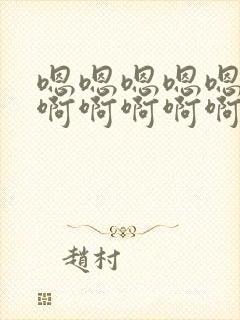 嗯嗯嗯嗯嗯
啊啊啊啊啊
趙村